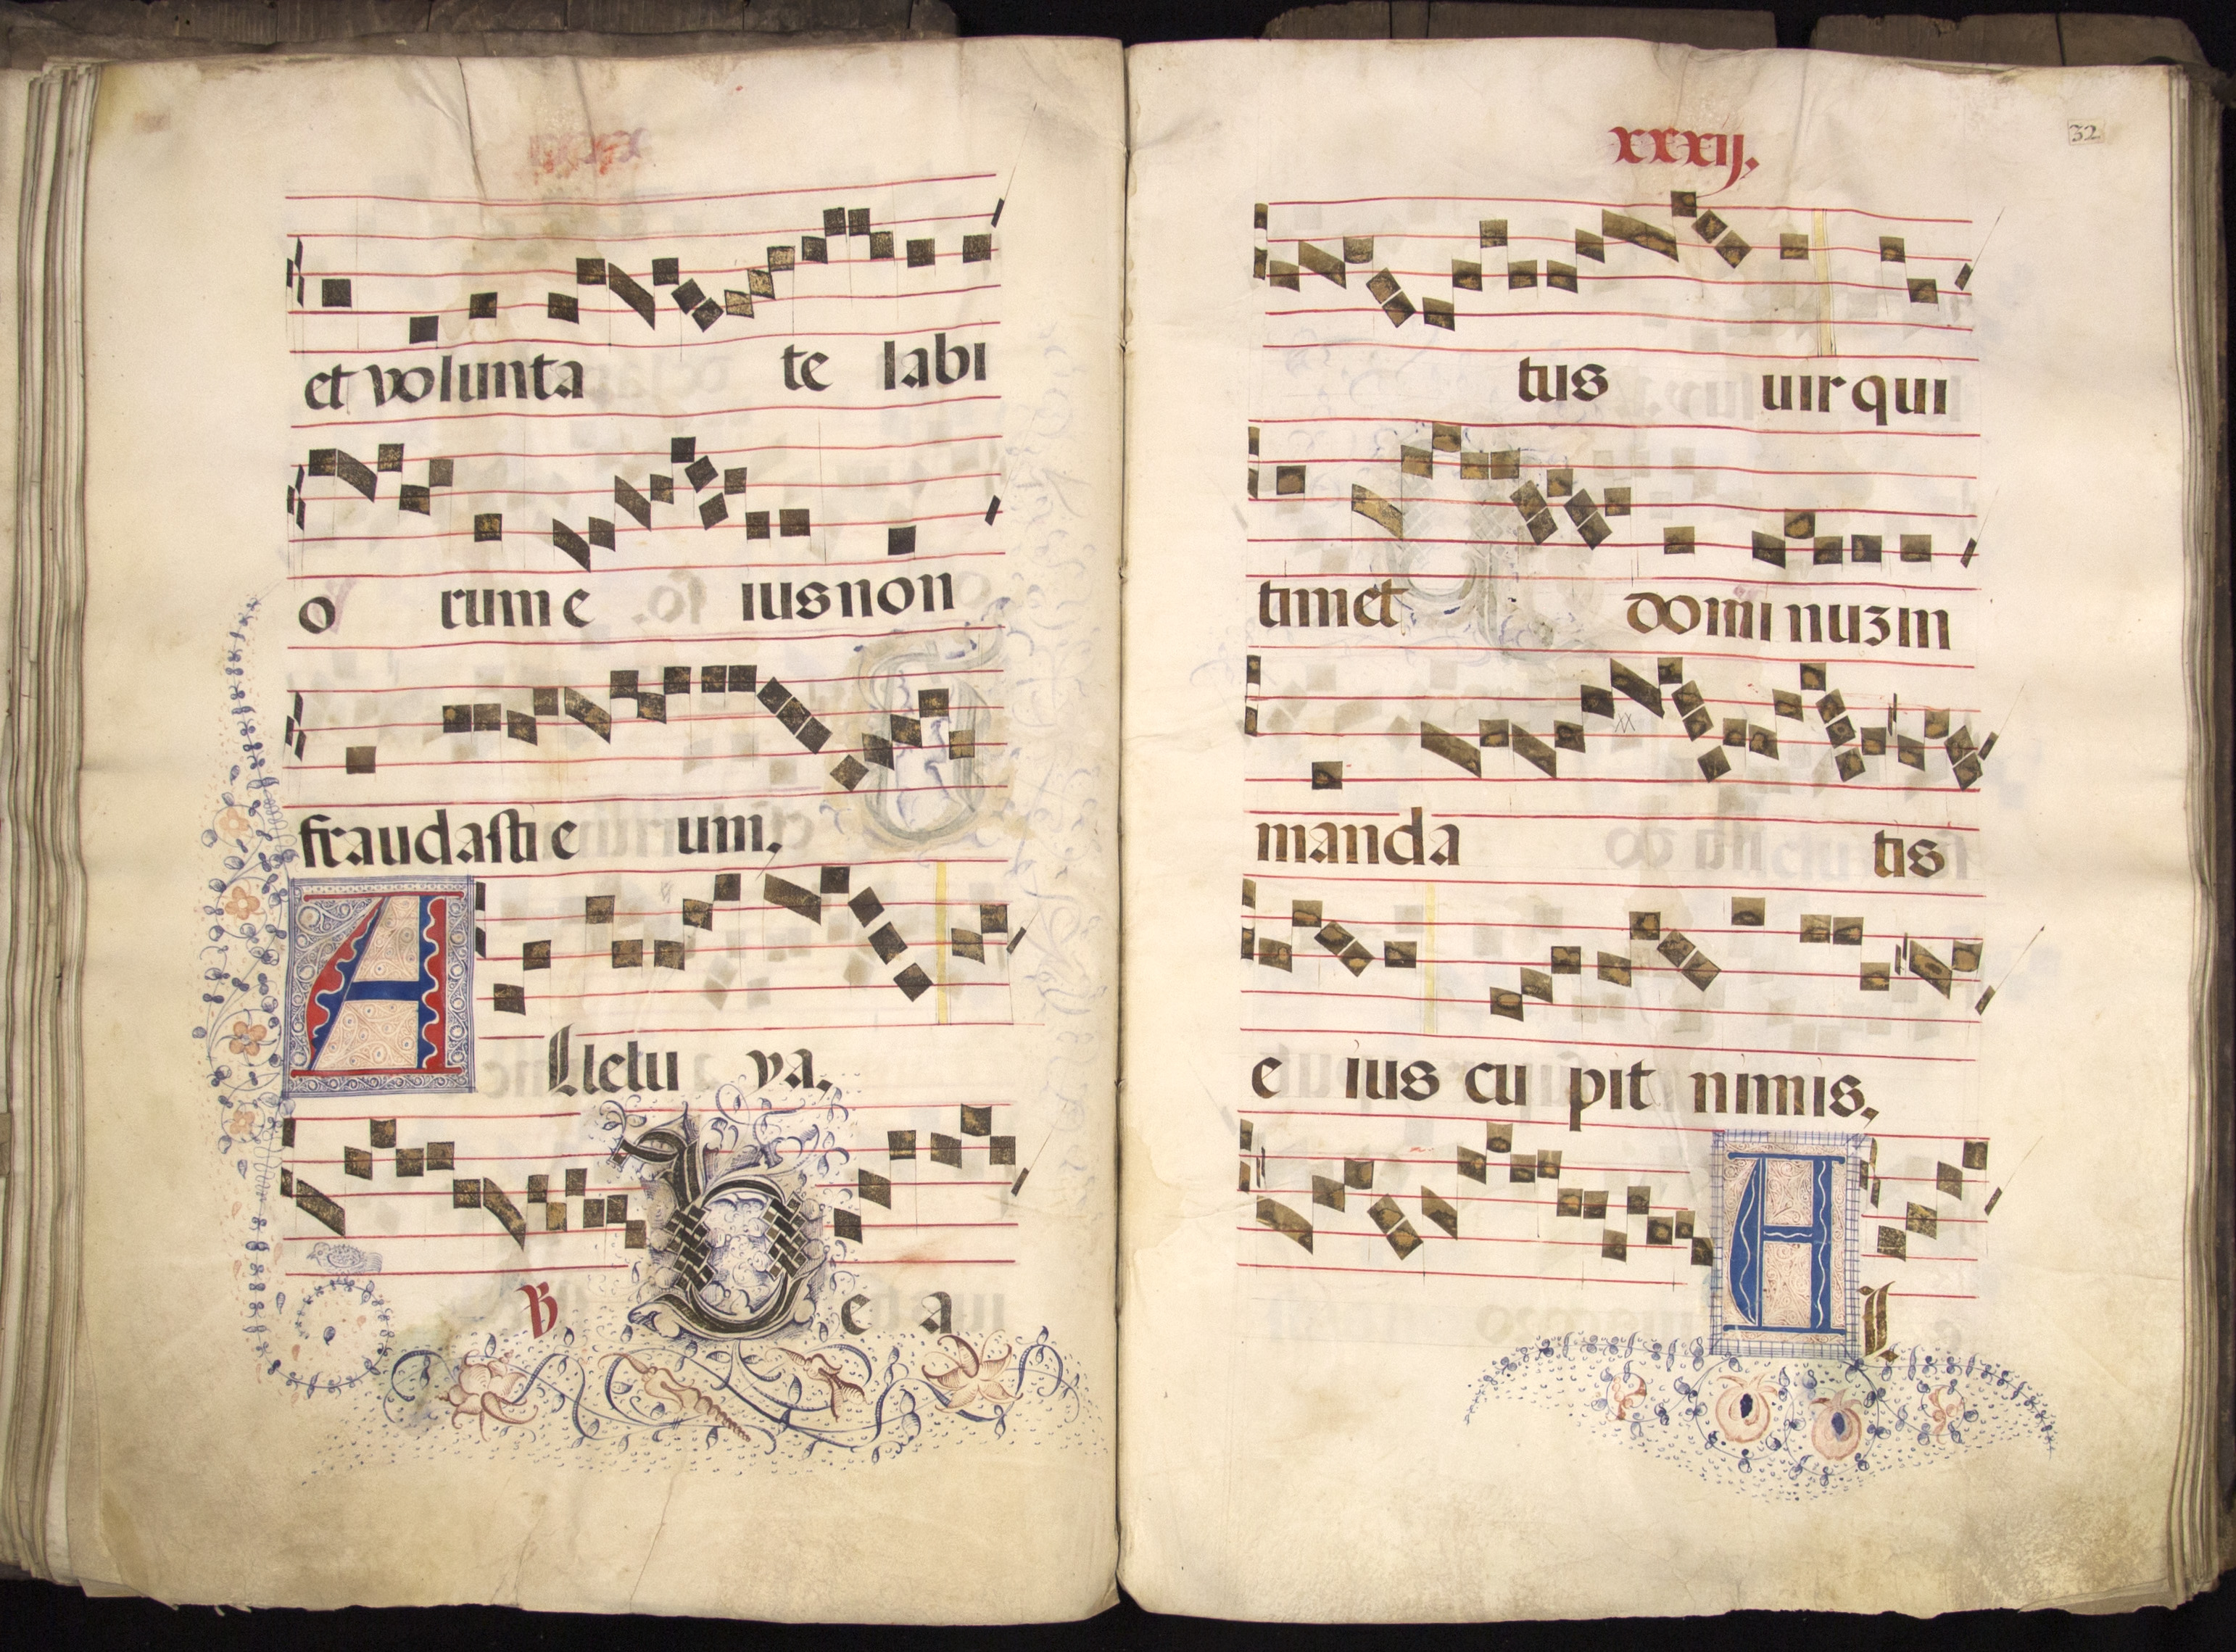 et volunta te labi
o rum e ius non
fraudasti e um.
A Lleluya.
B B e a
xxxij.
32
tus uir qui
timet domi nuz in
manda tis
e ius cu pit nimis.
A L